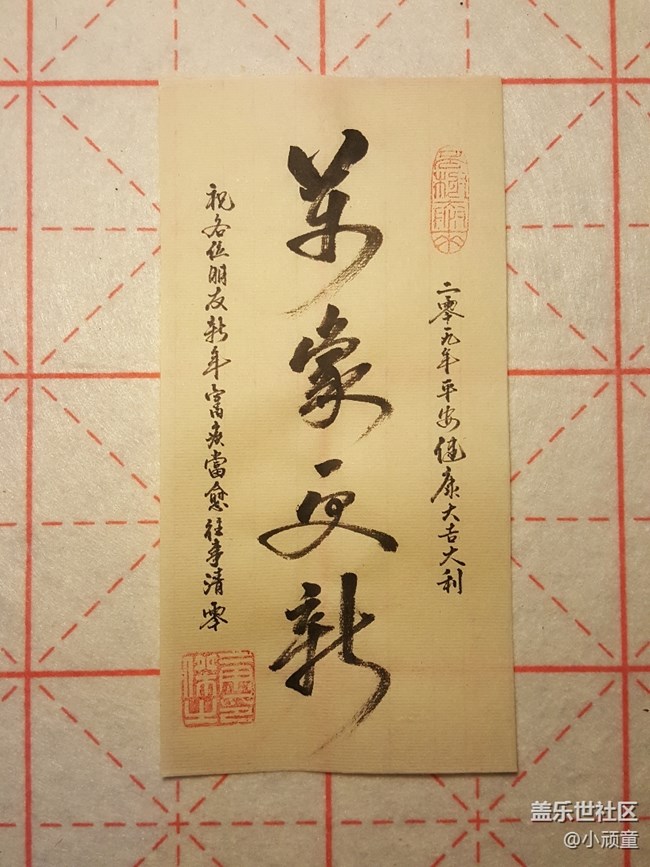 二零一九年平安健康大吉大利
萬象更新
祝各位朋友新年宿疾當愈往事清零
盖乐世社区
@小顽童